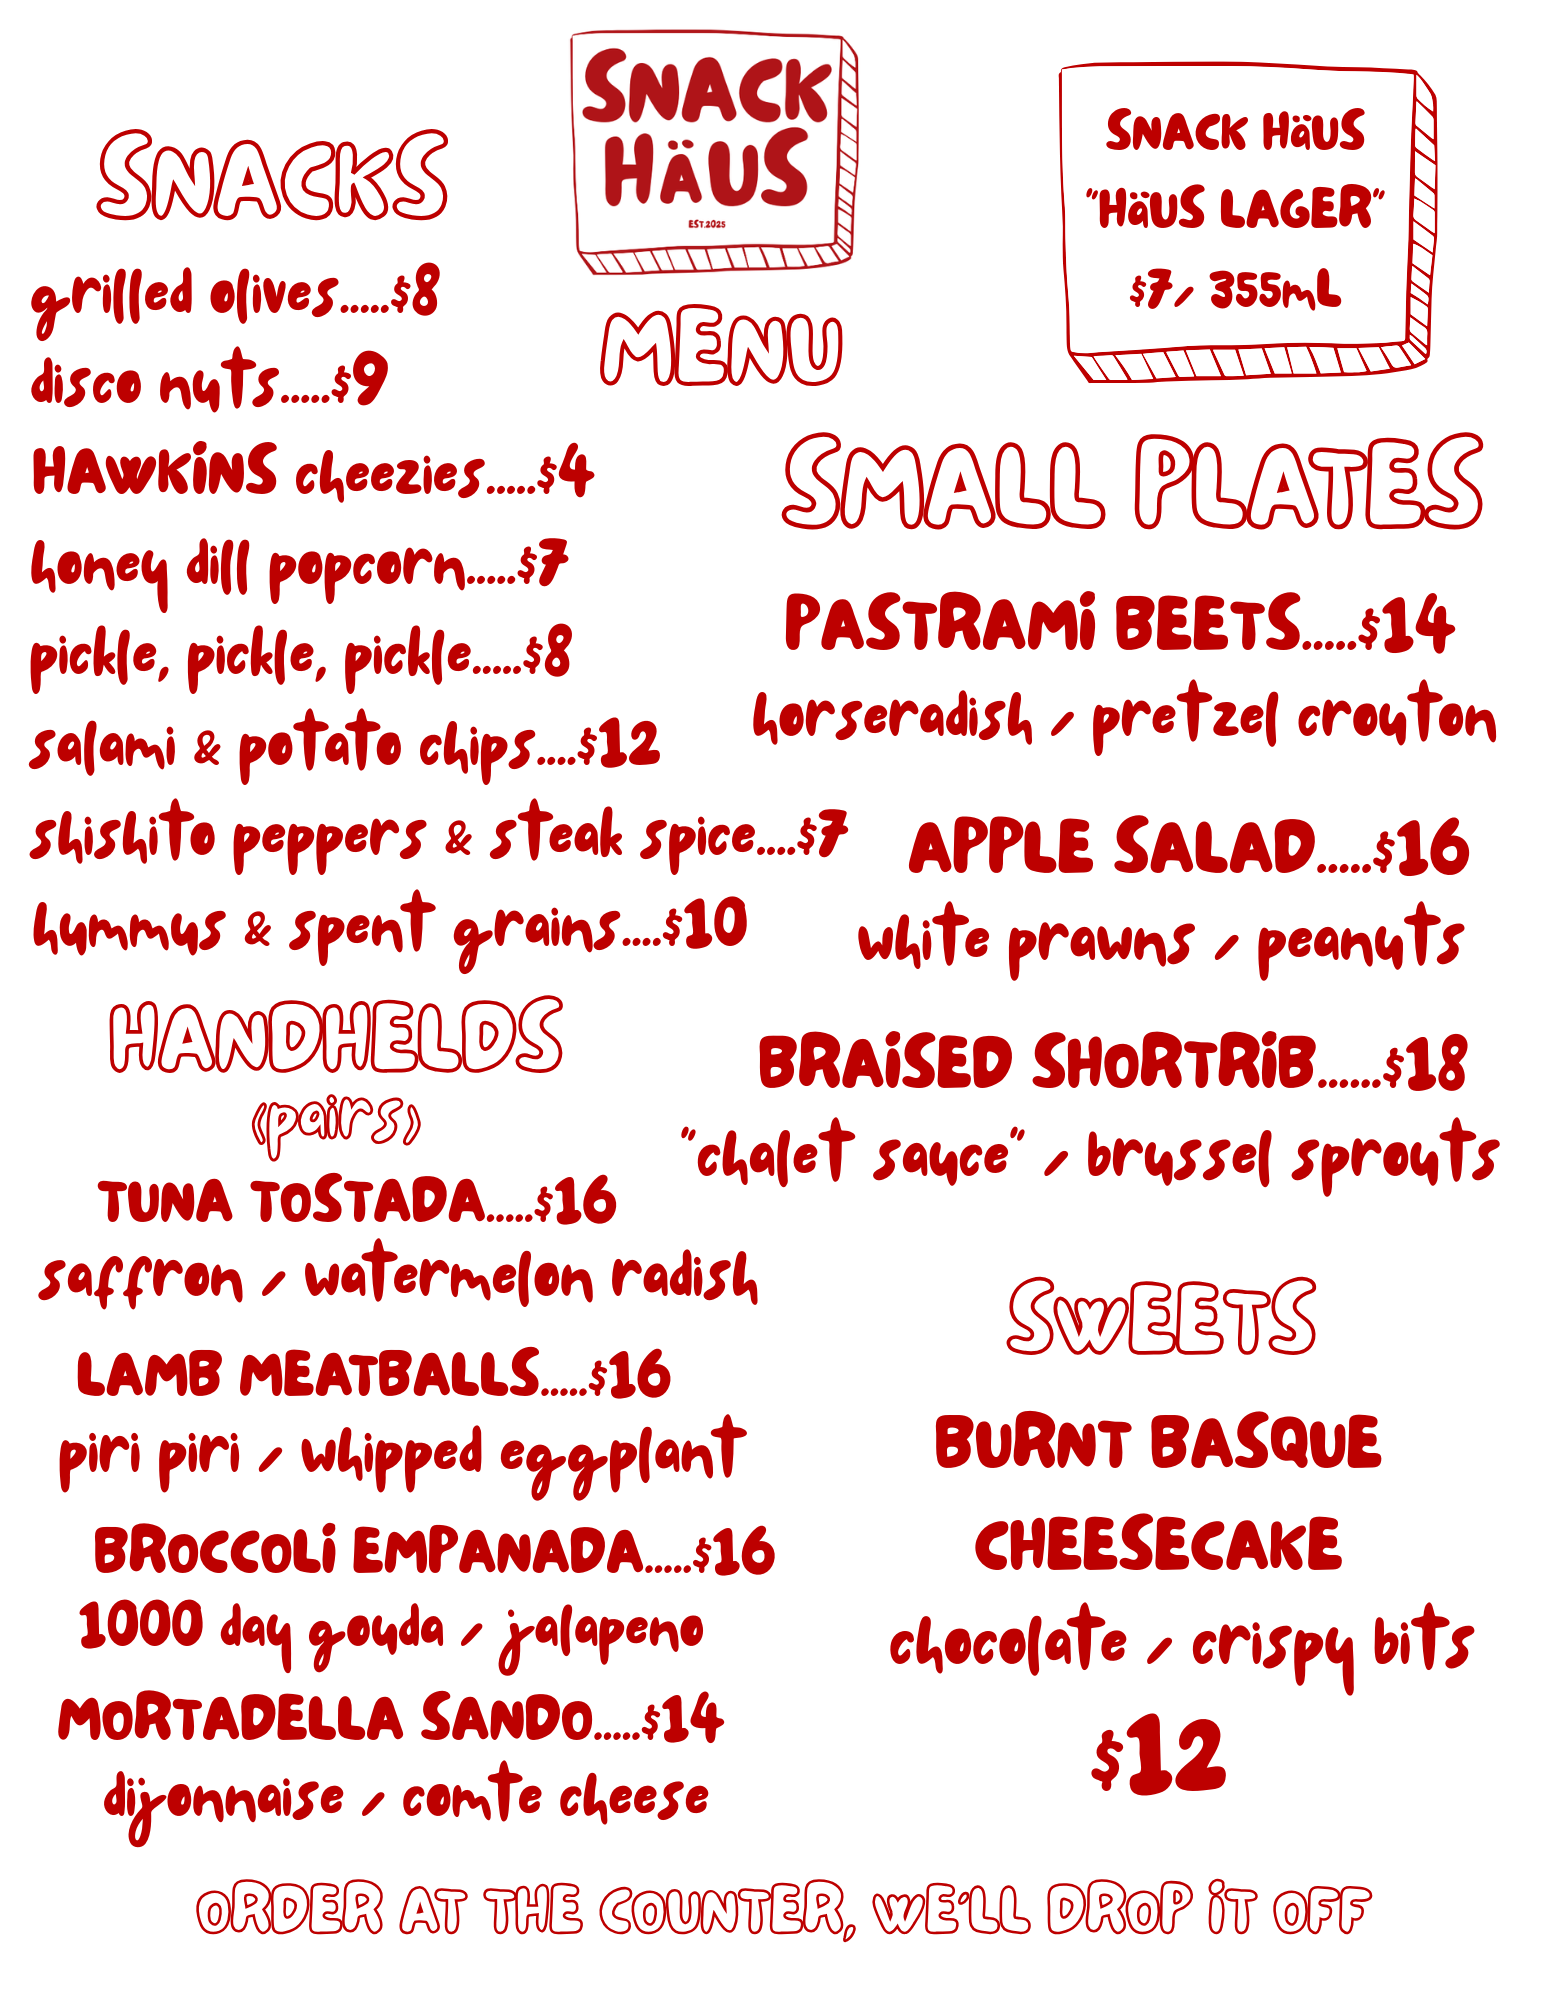 SNACK
HÄUS
EST.2025
MENU
SNACK HäUS
"HäUS LAGER"
$7/ 355mL
SNACKS
grilled olives.....$8
disco nuts.....$9
HAWKiNS cheezies.....$4
honey dill popcorn.....$7
pickle, pickle, pickle.....$8
salami & potato chips....$12
shishito peppers & steak spice....$7
hummus & spent grains....$10
HANDHELDS
(pairs)
TUNA TOSTADA.....$16
saffron / watermelon radish
LAMB MEATBALLS.....$16
piri piri / whipped eggplant
BROCCOLi EMPANADA.....$16
1000 day gouda / jalapeno
MORTADELLA SANDO.....$14
dijonnaise / comte cheese
SMALL PLATES
PASTRAMi BEETS.....$14
horseradish / pretzel crouton
APPLE SALAD.....$16
white prawns / peanuts
BRAiSED SHORTRiB......$18
"chalet sauce" / brussel sprouts
SWEETS
BURNT BASQUE
CHEESECAKE
chocolate / crispy bits
$12
ORDER AT THE COUNTER, WE'LL DROP iT OFF